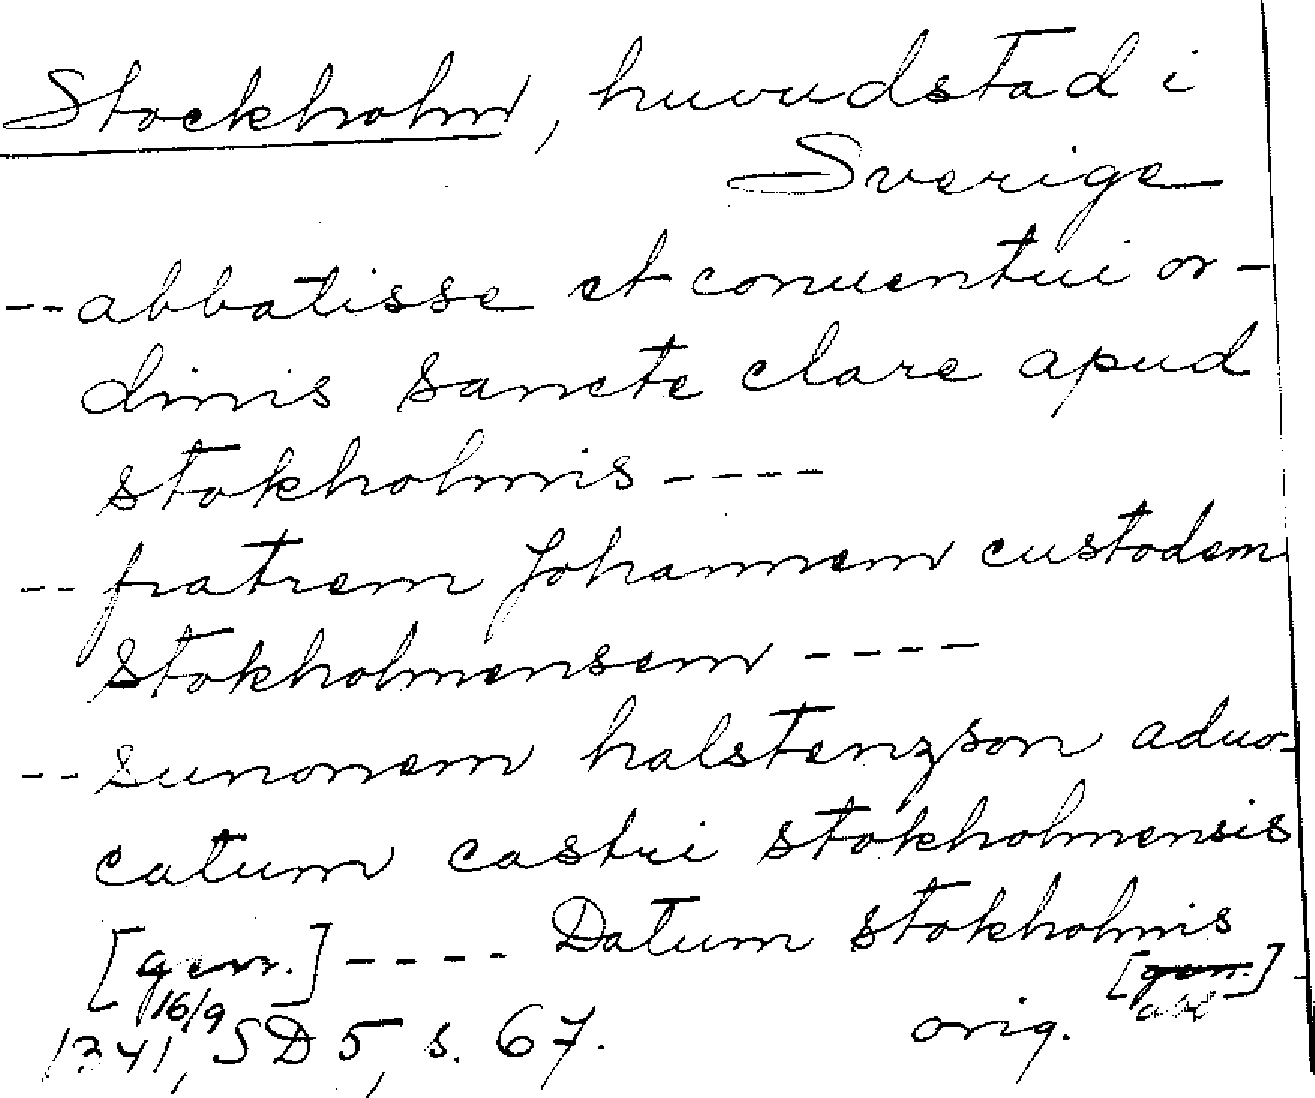 Stockholm, huvudstad i
Sverige
-- abbatisse et conuentui or-
dinis sancte clare apud
stokholmis ----
-- fratrem Johannem custodem
stokholmensem ----
-- sunonem halstenzson aduo-
catum castri stokholmensis
[gen.] ---- Datum stokholmis
[gen.]
abl
16/9
1341, SD 5, s. 67. orig.